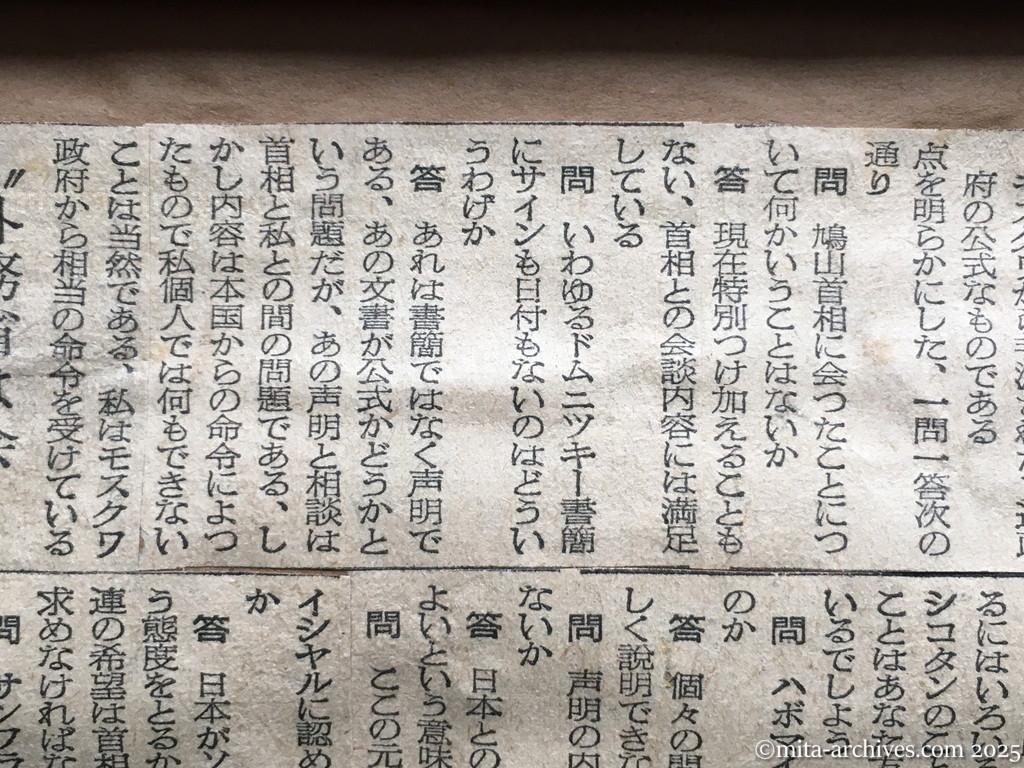 府の公式なものである
点を明らかにした、一問一答次の
通り
問　鳩山首相に会つたことにつ
いて何かいうことはないか
答　現在特別つけ加えることも
ない、首相との会談内容には満足
している
問　いわゆるドムニツキー書簡
にサインも日付もないのはどうい
うわけか
答　あれは書簡ではなく声明で
ある、あの文書が公式かどうかと
いう問題だが、あの声明と相談は
首相と私との間の問題である、し
かし内容は本国からの命令によつ
たもので私個人では何もできない
ことは当然である、私はモスクワ
政府から相当の命令を受けている
るにはいろい
シコタンのこと
ことはあなた方
いるでしよう
問　ハボマイ
のか
答　個々の問
しく説明できな
問　声明の内
ないか
答　日本との
よいという意味
問　ここの元
イシヤルに認め
か
答　日本がソ
う態度をとるか
連の希望は首相
求めなければな
問　サンフラ
©mita-archives.com 2025